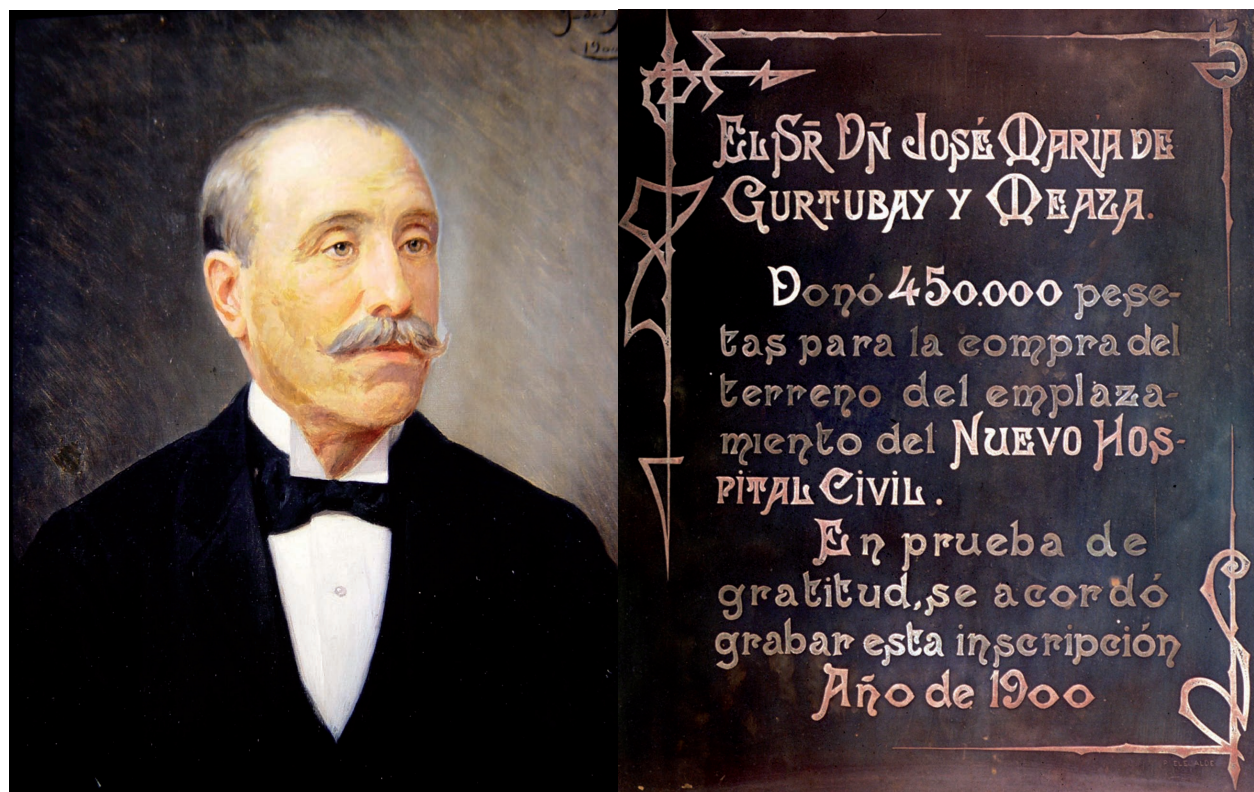 1900
El Sr̄ Dñ José María de
Gurtubay y Meaza.
Donó 450.000 pese-
tas para la compra del
terreno del emplaza-
miento del Nuevo Hos-
pital Civil.
En prueba de
gratitud, se acordó
grabar esta inscripción
Año de 1900